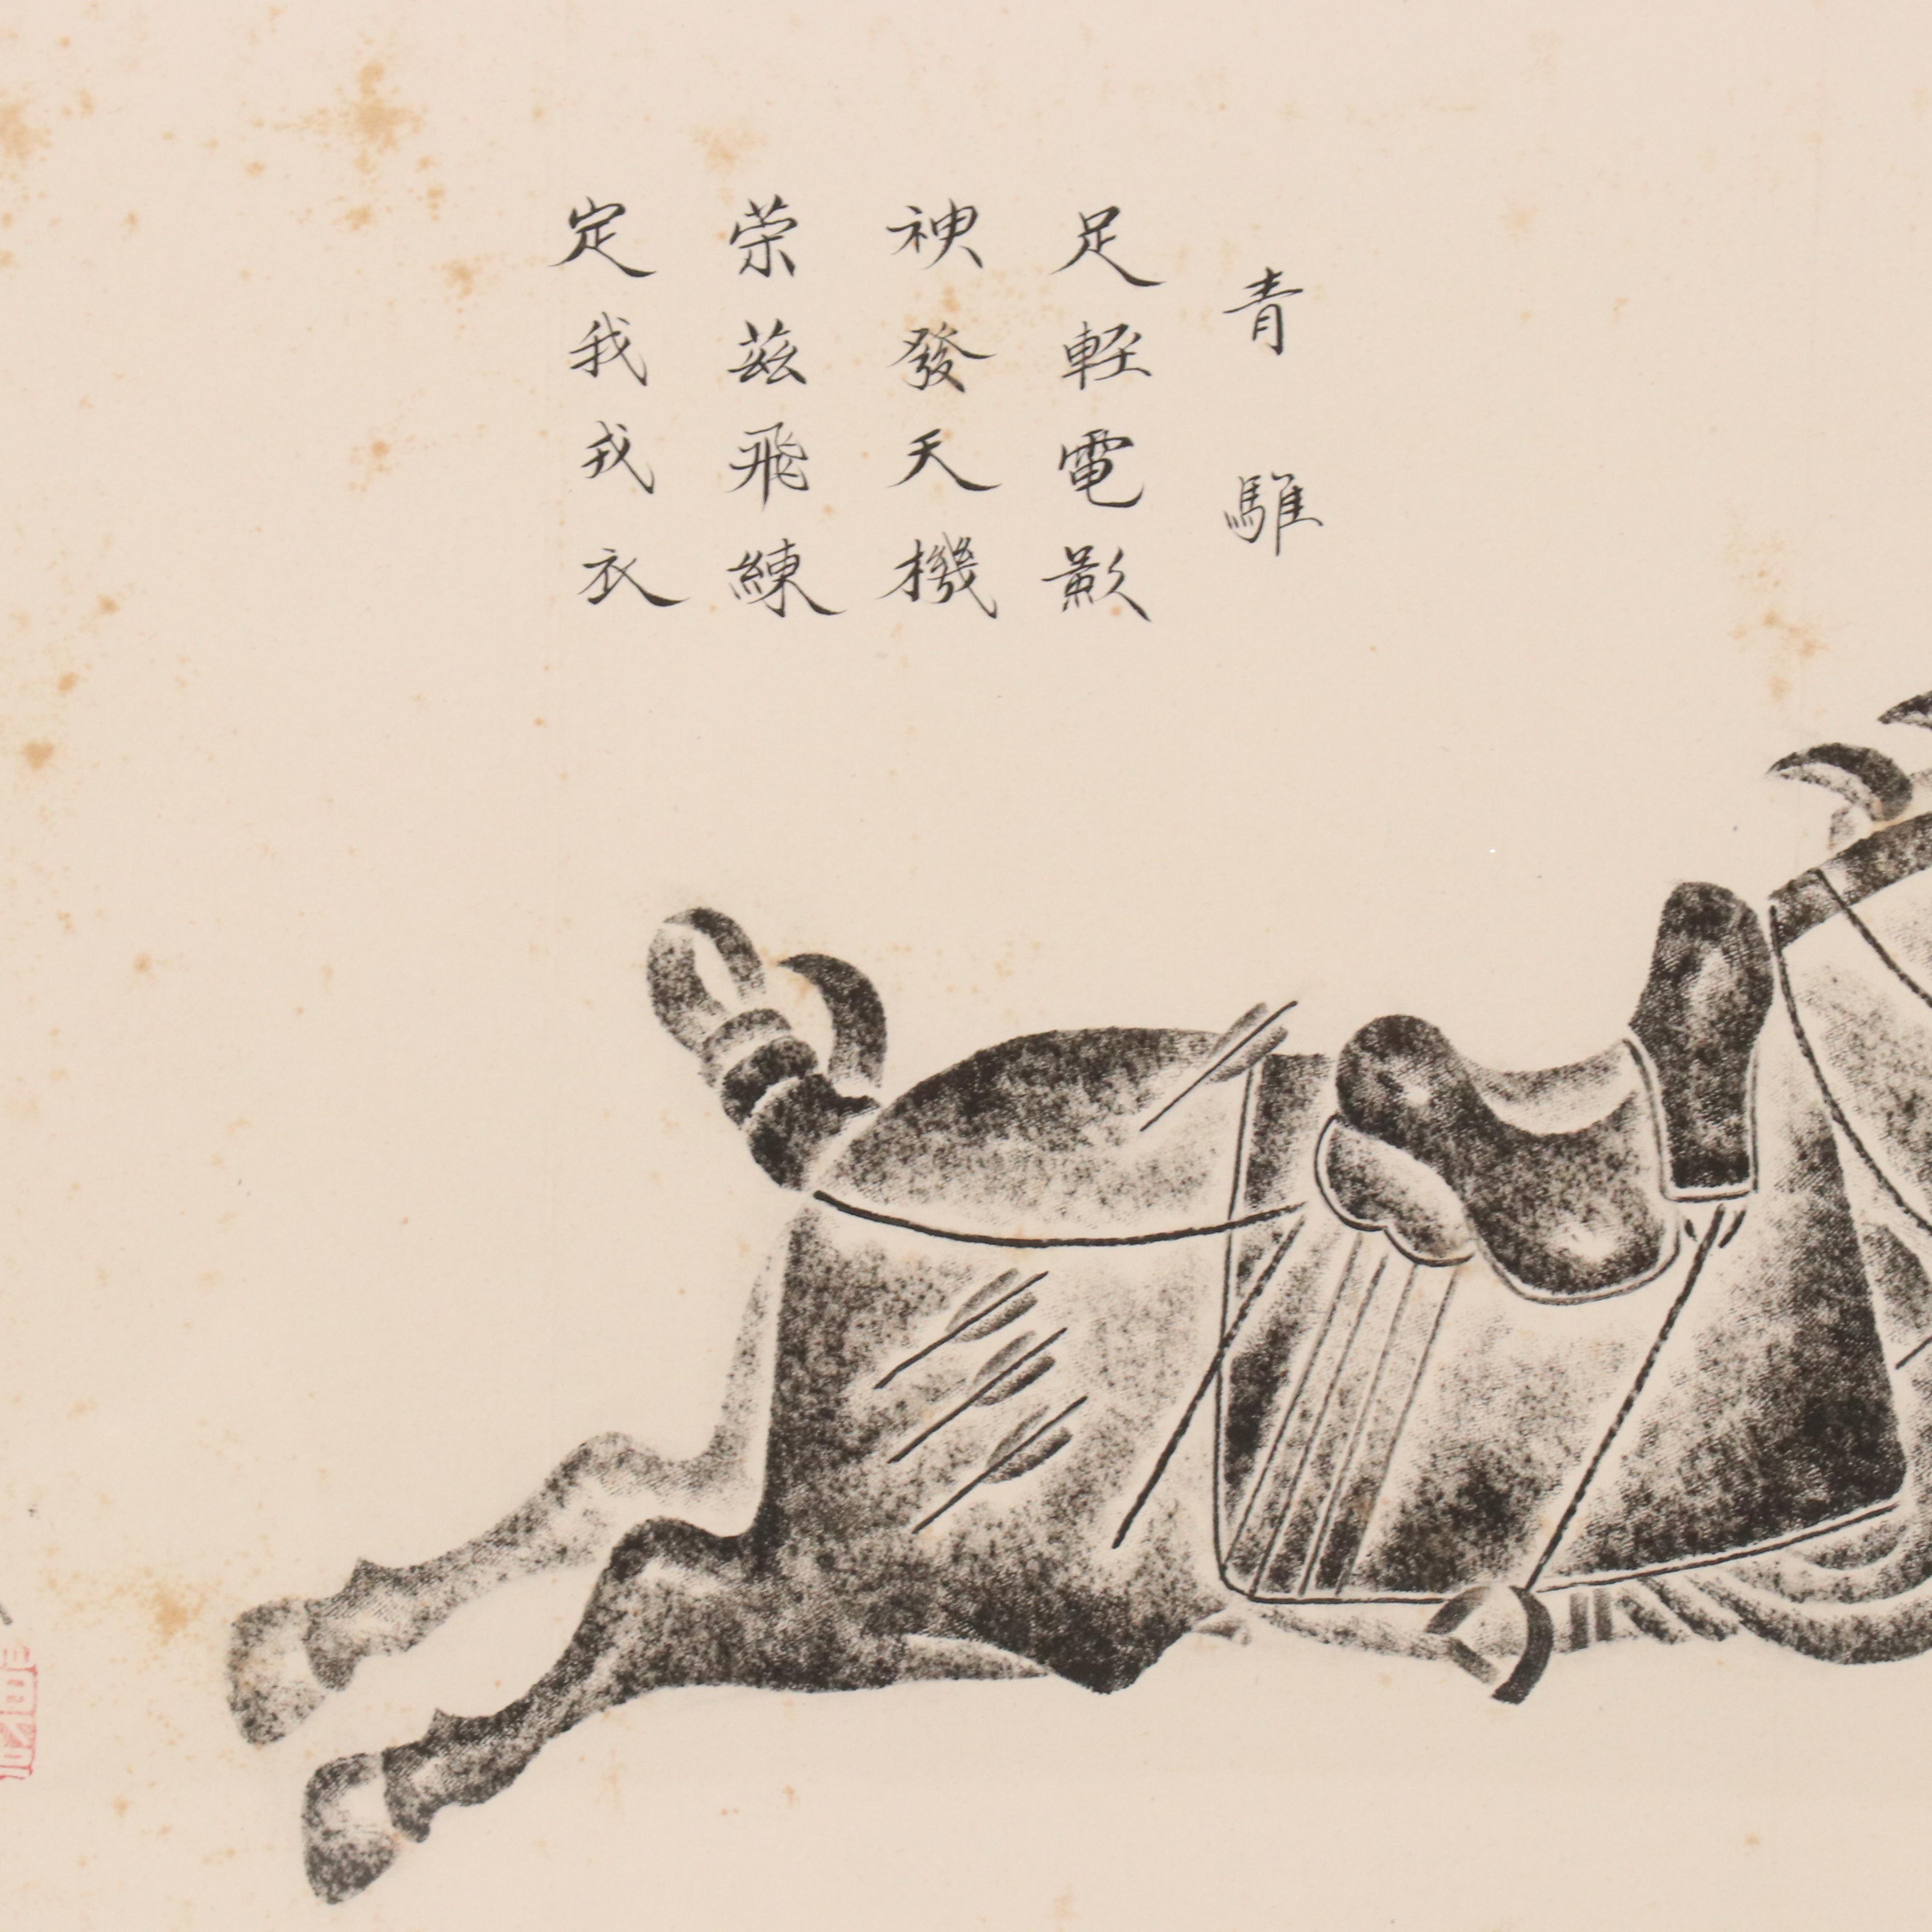 青騅
足軽電影
神發天機
荣茲飛練
定我戎衣